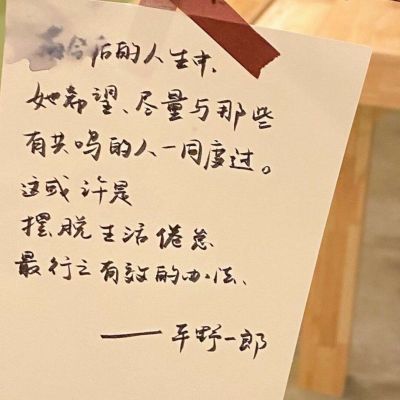 后的人生中、
她希望、尽量与那些
有共鸣的人一同度过。
这或许是
摆脱生活倦怠
最行之有效的办法、
——平野一郎